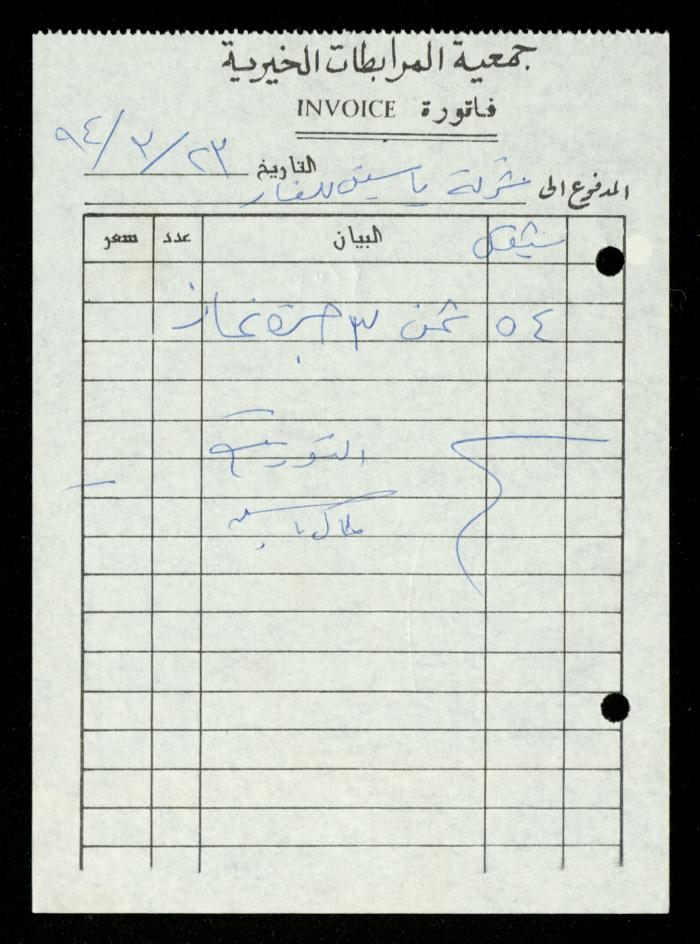 جمعية المرابطات الخيرية
فاتورة INVOICE
التاريخ ٢٣/٣/٩٤
المدفوع الى شركة ياسين للغاز
شيقل البيان عدد سعر
٥٤ ثمن ٣ جرة غاز
التوريد